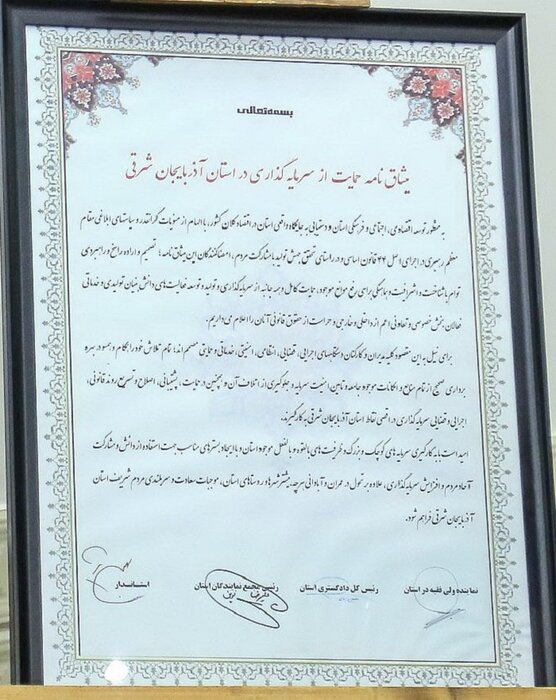 بسمه‌تعالی
میثاق نامه حمایت از سرمایه گذاری در استان آذربایجان شرقی
به منظور توسعه اقتصادی، اجتماعی و فرهنگی استان و دستیابی به جایگاه واقعی استان در اقتصاد کلان کشور، با الهام از منویات گرانقدر و سیاستهای ابلاغی مقام
معظم رهبری در اجرای اصل ۴۴ قانون اساسی و در راستای تحقق جهش تولید با مشارکت مردم، امضاکنندگان این میثاق نامه با تصمیم و اراده راسخ و راهبردی
توام با شناخت و اشرافیت و هماهنگی برای رفع موانع موجود، حمایت کامل و همه جانبه از سرمایه گذاری و تولید و توسعه فعالیت های دانش بنیان تولیدی و خدماتی
فعالان بخش خصوصی و تعاونی اعم از داخلی و خارجی و حراست از حقوق قانونی آنان را اعلام می داریم.
برای نیل به این مقصود کلیه مدیران و کارکنان دستگاههای اجرایی، قضایی، انتظامی، امنیتی، خدماتی و حمایتی مصمم اند تمام تلاش خود را بکار بسته و در بهره
برداری صحیح از تمام منابع و امکانات موجود جامعه و تامین امنیت سرمایه و جلوگیری از اتلاف آن و همچنین در حمایت، پشتیبانی، اصلاح و تسریع روند قانونی،
اجرایی و قضایی سرمایه گذاری در اقصی نقاط استان آذربایجان شرقی به کار گیرند.
امید است با به کارگیری سرمایه های کوچک و بزرگ و ظرفیت های بالقوه و بالفعل موجود استان و با ایجاد بسترهای مناسب جهت استفاده از دانش و مشارکت
آحاد مردم و افزایش سرمایه گذاری، علاوه بر تحول در عمران و آبادانی هرچه بیشتر شهرها و روستاهای استان، موجبات سعادت و سربلندی مردم شریف استان
آذربایجان شرقی فراهم شود.
نماینده ولی فقیه در استان رئیس کل دادگستری استان رئیس مجمع نمایندگان استان استاندار